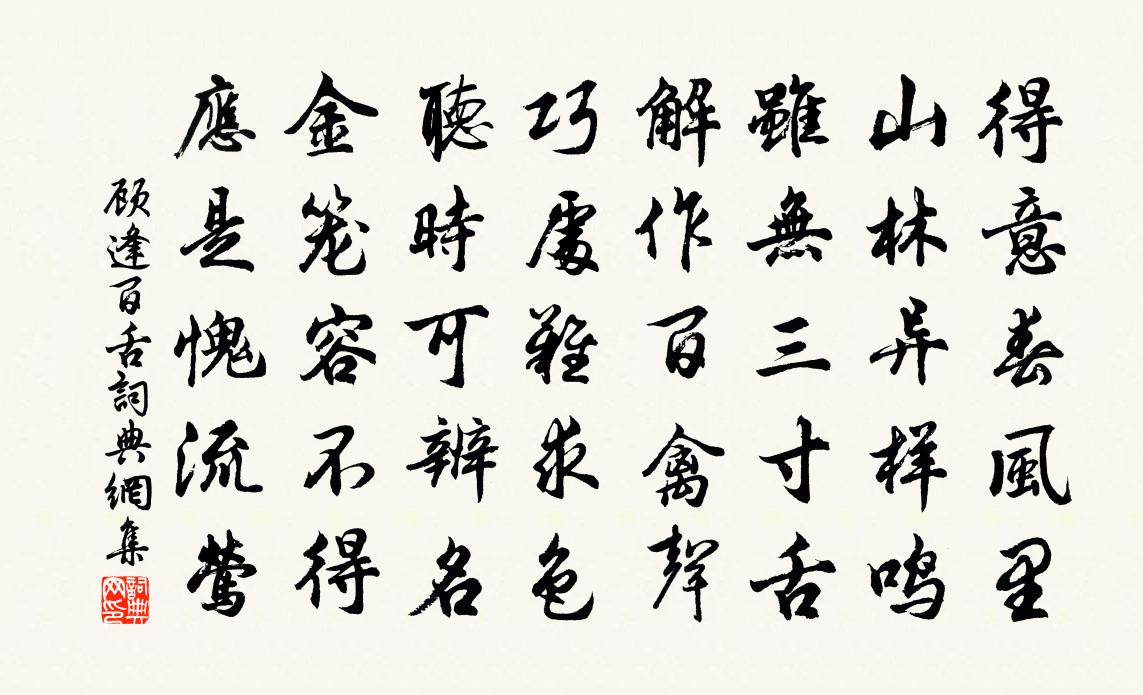 得意春風里
山林异样鳴
雖無三寸舌
解作百禽聲
巧處難求色
聽時可辨名
金笼容不得
應是愧流莺
顾逢百舌詞典網集
詞典网印